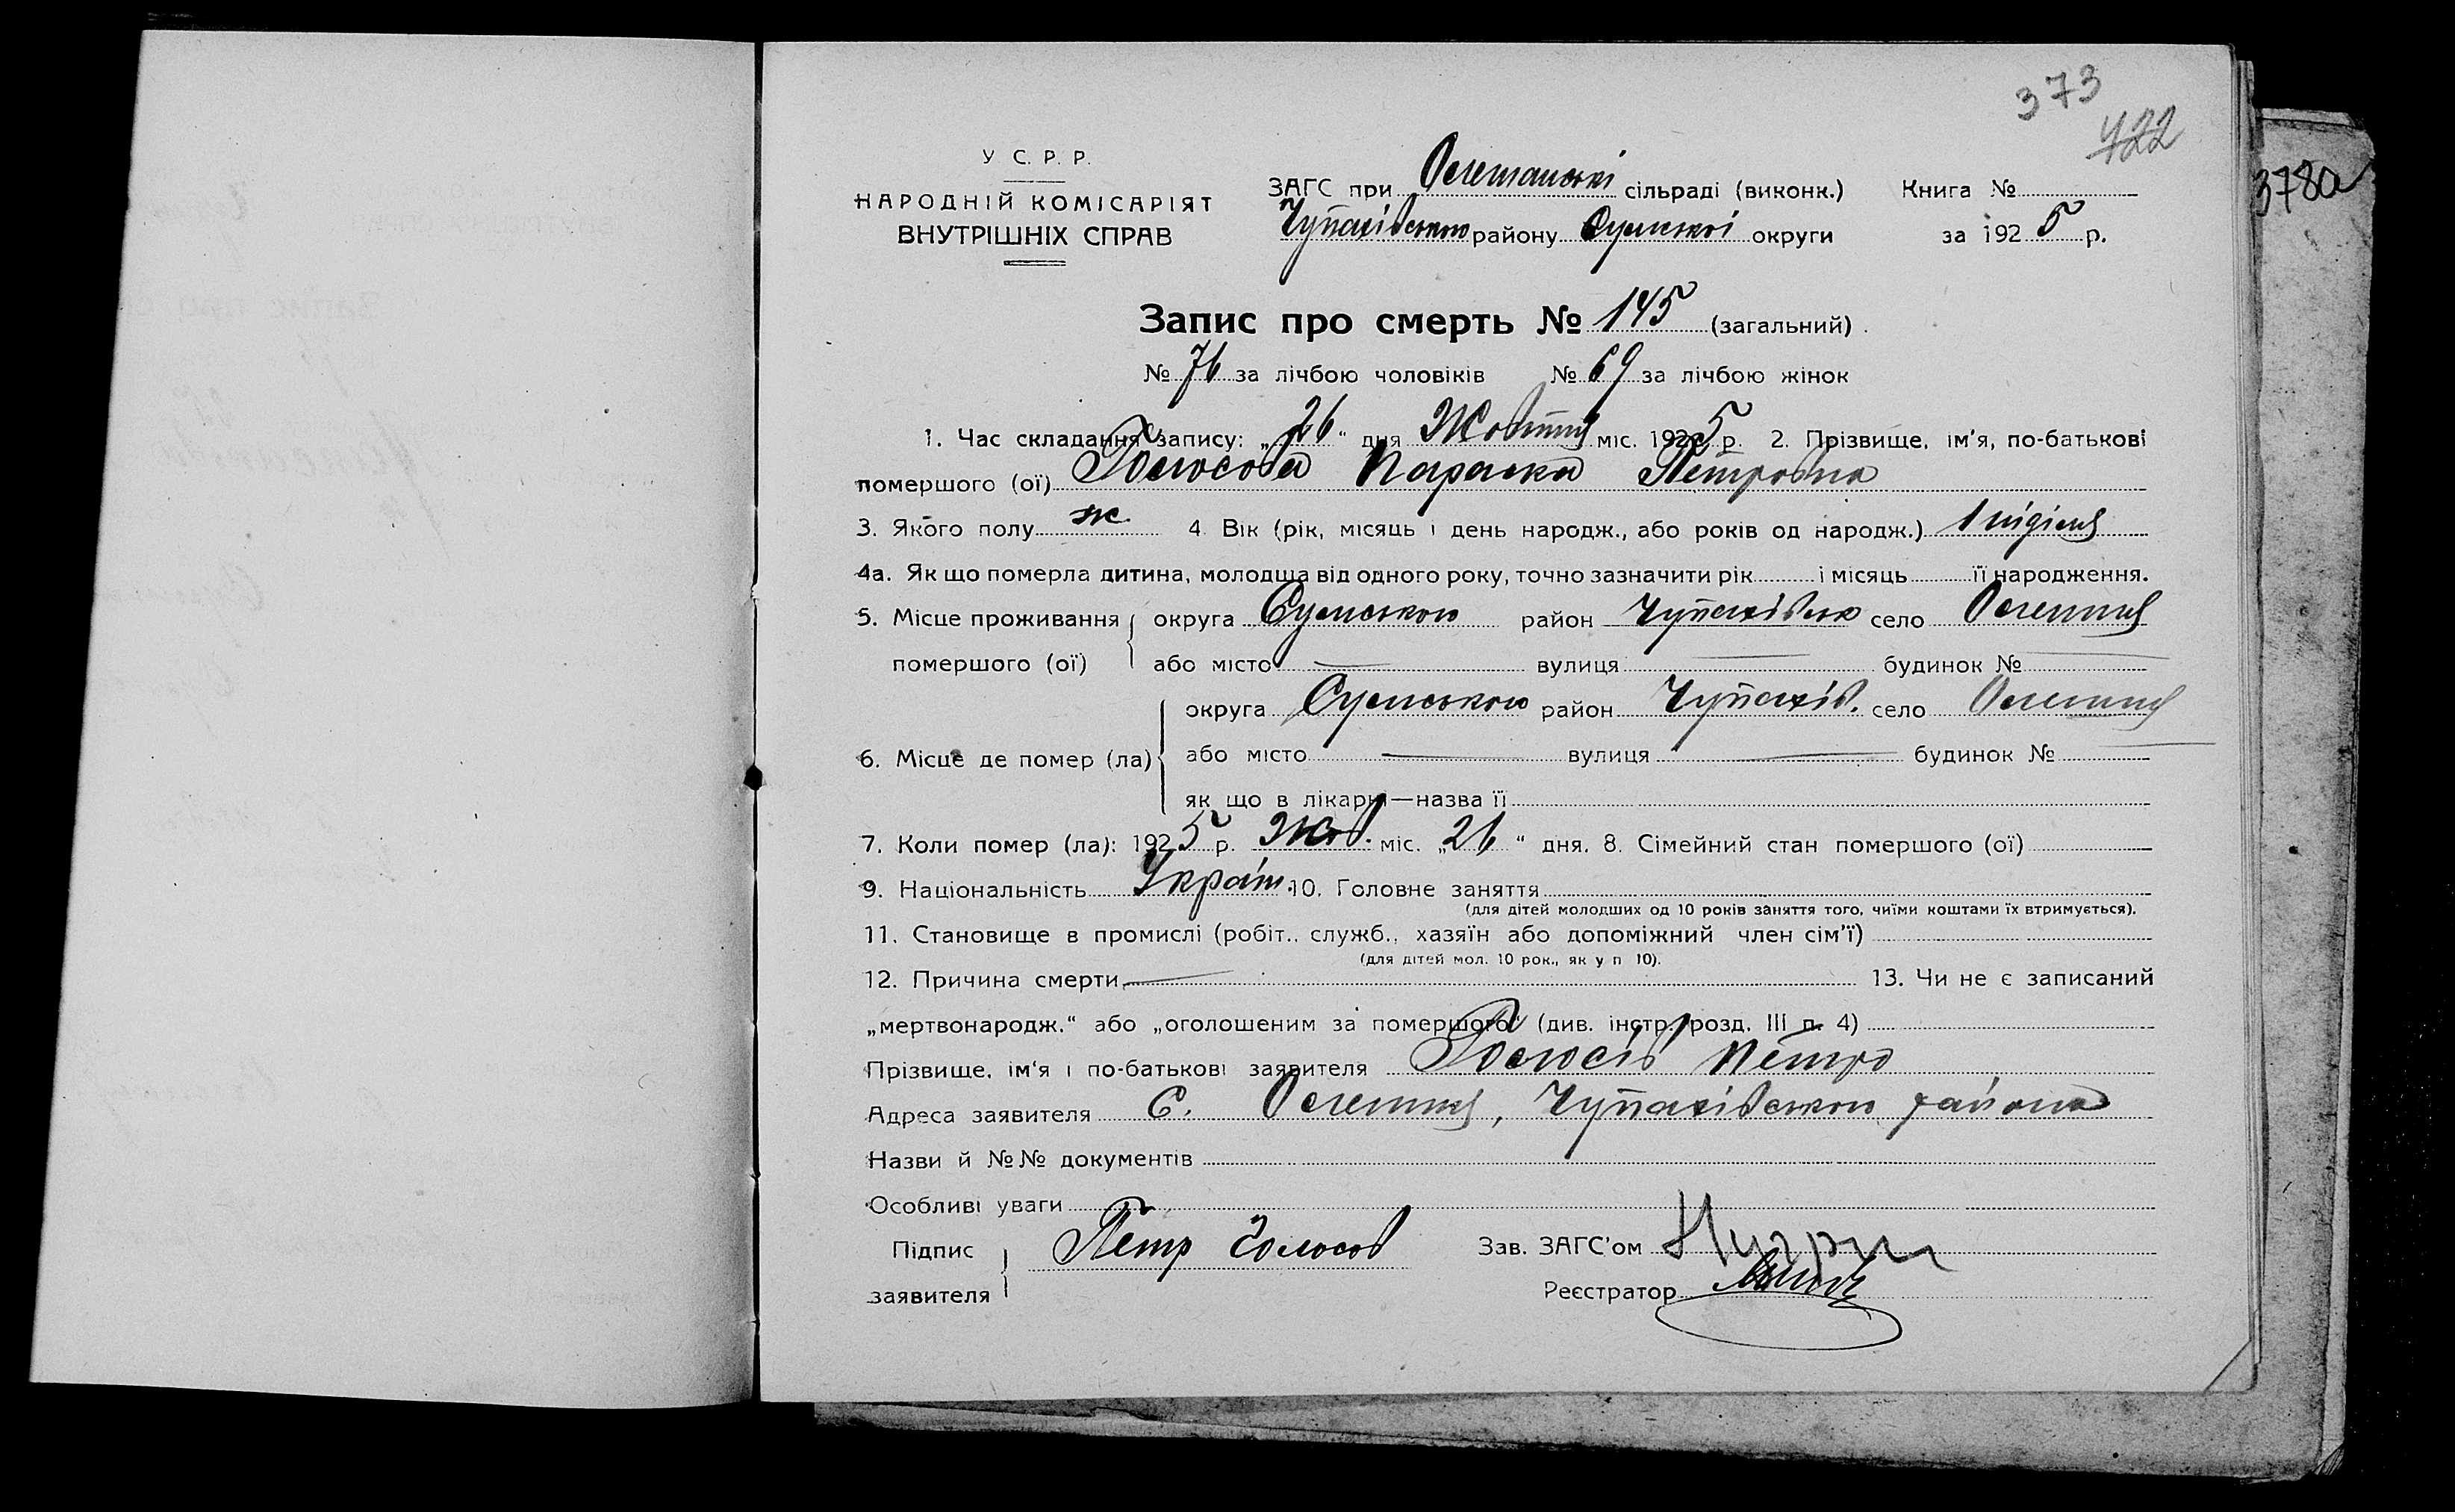 373
422
378а
У С. Р. Р.
НАРОДНІЙ КОМІСАРІЯТ
ВНУТРІШНІХ СПРАВ
ЗАГС при Олешанські сільраді (виконк.) Книга №
Чупахівського району Сумської округи за 1925 р.
Запис про смерть № 145 (загальний)
№ 76 за лічбою чоловіків № 69 за лічбою жінок
1. Час складання запису: „26“ дня Жовтня міс. 1925 р. 2. Прізвище, ім'я, по-батькові
помершого (ої) Голосова Параска Петровна
3. Якого полу ж. 4. Вік (рік, місяць і день народж., або років од народж.) 1 нідієля
4а. Як що померла дитина, молодша від одного року, точно зазначити рік і місяць її народження.
5. Місце проживання округа Сумського район Чупахівсько село Олешня
помершого (ої) або місто — вулиця — будинок № —
округа Сумського район Чупахів. село Олешня
6. Місце де помер (ла) або місто — вулиця — будинок № —
як що в лікарн—назва її
7. Коли помер (ла): 1925 р. Жов. міс. „26“ дня. 8. Сімейний стан помершого (ої)
9. Національність Україн. 10. Головне заняття
(для дітей молодших од 10 років заняття того, чиїми коштами їх втримується).
11. Становище в промислі (робіт., служб., хазяїн або допоміжний член сім'ї)
(для дітей мол. 10 рок., як у п 10).
12. Причина смерти — 13. Чи не є записаний
„мертвонародж.“ або „оголошеним за помершого“ (див. інстр. розд. III п. 4)
Прізвище, ім'я і по-батькові заявителя Голосів Петро
Адреса заявителя С. Олешня, Чупахівського района
Назви й №№ документів
Особливі уваги
Підпис Петр Голосов Зав. ЗАГС'ом
заявителя Реєстратор